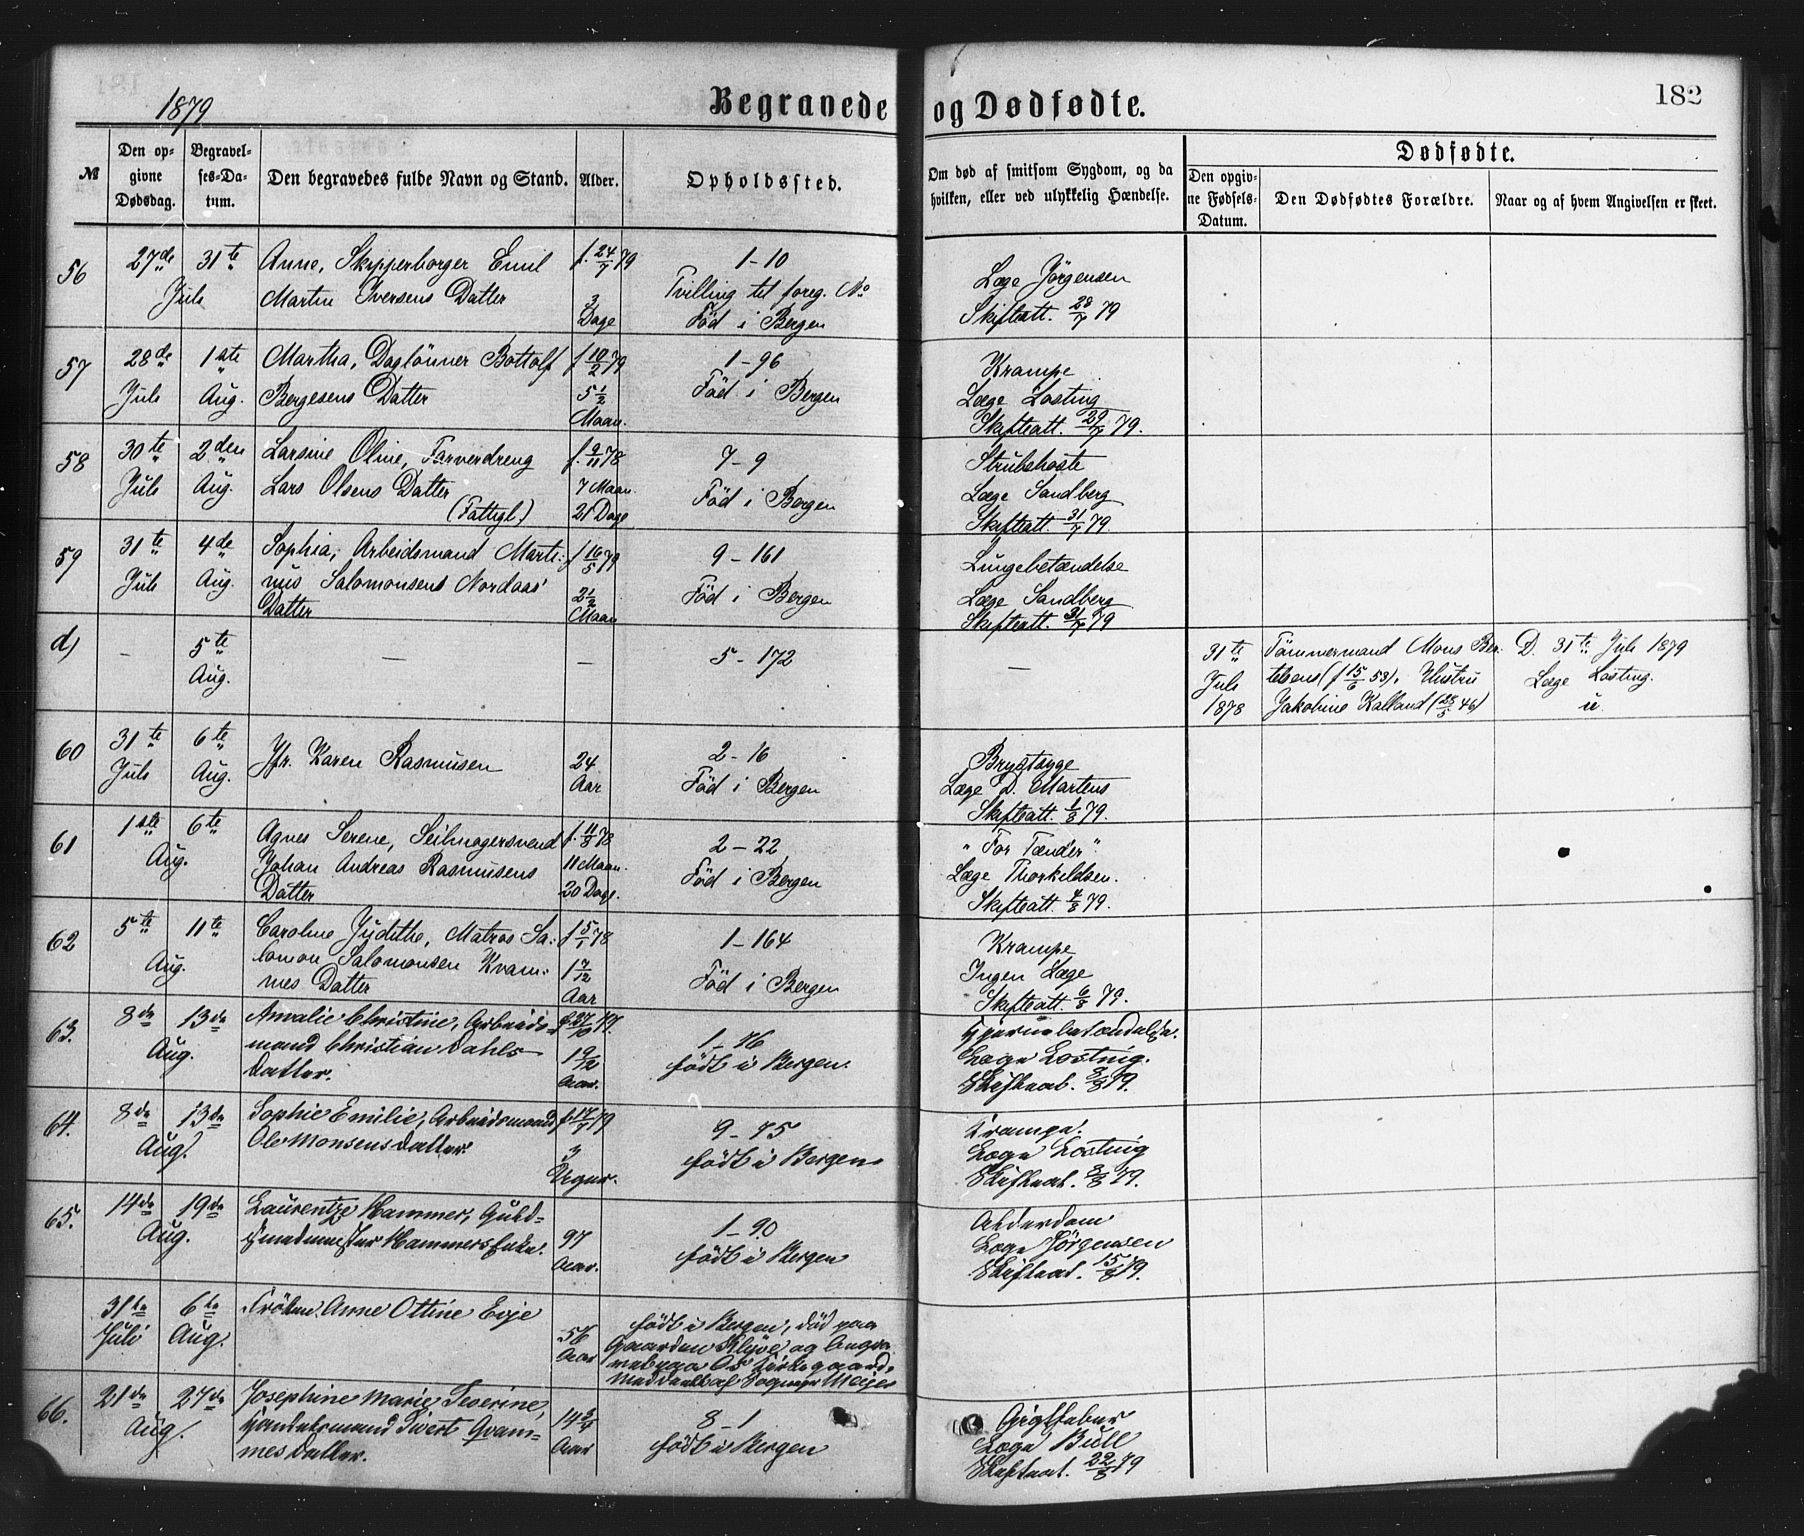 1879
Begravede og Dødfødte.
182
№
Den opgivne Dødsdag.
Begravelses-Datum.
Den begravedes fulde Navn og Stand.
Alder.
Opholdssted.
Om død af smitsom Sygdom, og da hvilken, eller ved ulykkelig Hændelse.
Dødfødte.
Den opgivne Fødsels-Datum.
Den Dødfødtes Forældre.
Naar og af hvem Angivelsen er skeet.
56
27de Juli
31te
Anne, Skipperborger Emil
Martin Iversens Datter
f. 24/7 79
3 Dage
1-10
Tvilling til foreg. No
Föd i Bergen
Læge Jörgensen
Skifteatt. 28/7 79
57
28de Juli
1ste Aug.
Martha, Daglönner Bottolf
Bergesens Datter
f 10/2 79
5 1/2 Maan.
1-96
Föd i Bergen
Krampe
Læge Losting
Skifteatt. 29/7 79.
58
30te Juli
2den Aug.
Larsine Oline, Farverdreng
Lars Olsens Datter
(Fattigl.)
f. 9/11 78
7 Maan.
21 Dage
7-9
Föd i Bergen
Strubehoste
Læge Sandberg
Skifteatt. 31/7 79.
59
31te Juli
4de Aug.
Sophia, Arbeidsmand Marti-
nus Salomonsens Nordaas'
Datter
f 16/5 79
2 1/2 Maan
9-161
Föd i Bergen
Lungebetændelse
Læge Sandberg
Skifteatt. 31/7 79
d)
-
5te Aug.
-
-
5-172
-
31te Juli 1878
Tömmermand Mons Ber-
telsens (f 15/6 53), Hustru
Jakobine Kalland (28/5 46)
D. 31te Juli 1879
Læge Losting.
u.
60
31te Juli
6te Aug.
Jfr. Karen Rasmusen
24 Aar
2-16
Föd i Bergen
Brystsyge
Læge D. Martens
Skifteatt. 1/8 79.
61
1ste Aug.
6te
Agnes Serene, Seilmagersvend
Johan Andreas Rasmusens
Datter
f. 11/8 78
11 Maan.
20 Dage.
2-22
Föd i Bergen
"For Tænder"
Læge Thorkildsen.
Skifteatt. 4/8 79.
62
5te Aug.
11te
Caroline Judithe, Matros Sa-
lomon Salomonsen Kvam-
mes Datter
f 5/1 78
1 7/12 Aar
1-164
Föd i Bergen
Krampe
Ingen Læge
Skifteatt. 6/8 79.
63.
8de Aug.
13de
Amalie Christine, Arbeids-
mand Christian Dahls
Datter.
1 9/12 Aar.
1-76
født i Bergen.
Hjernebetændelse.
Læge Losting.
Skifteat. 8/8 79.
64.
8de Aug.
13de
Sophie Emilie, Arbeidsmand
Ole Monsens Datter.
f. 17/7 79
3 Uger.
9-75
født i Bergen
Krampe.
Læge Losting
Skifteat. 8/8 79.
65.
14de Aug.
19de
Laurentze Hammer, Guld-
smedmester Hammers Enke.
97 Aar.
1-90
født i Bergen
Alderdom
Læge Jørgensen
Skifteat. 15/8 79.
31te Juli
6te Aug.
Frøken Anne Ottine Evje
56 Aar
født i Bergen, død paa
Gaarden Kløve og
Meddeelt af Sognepr Meijer
66.
21de Aug.
27de
Josephine Marie Severine,
Handelsmand Sivert Qvam-
mes Datter.
Aar
8-1
født i Bergen
Gigtfeber
Læge Bull
Skifteat. 22/8 79